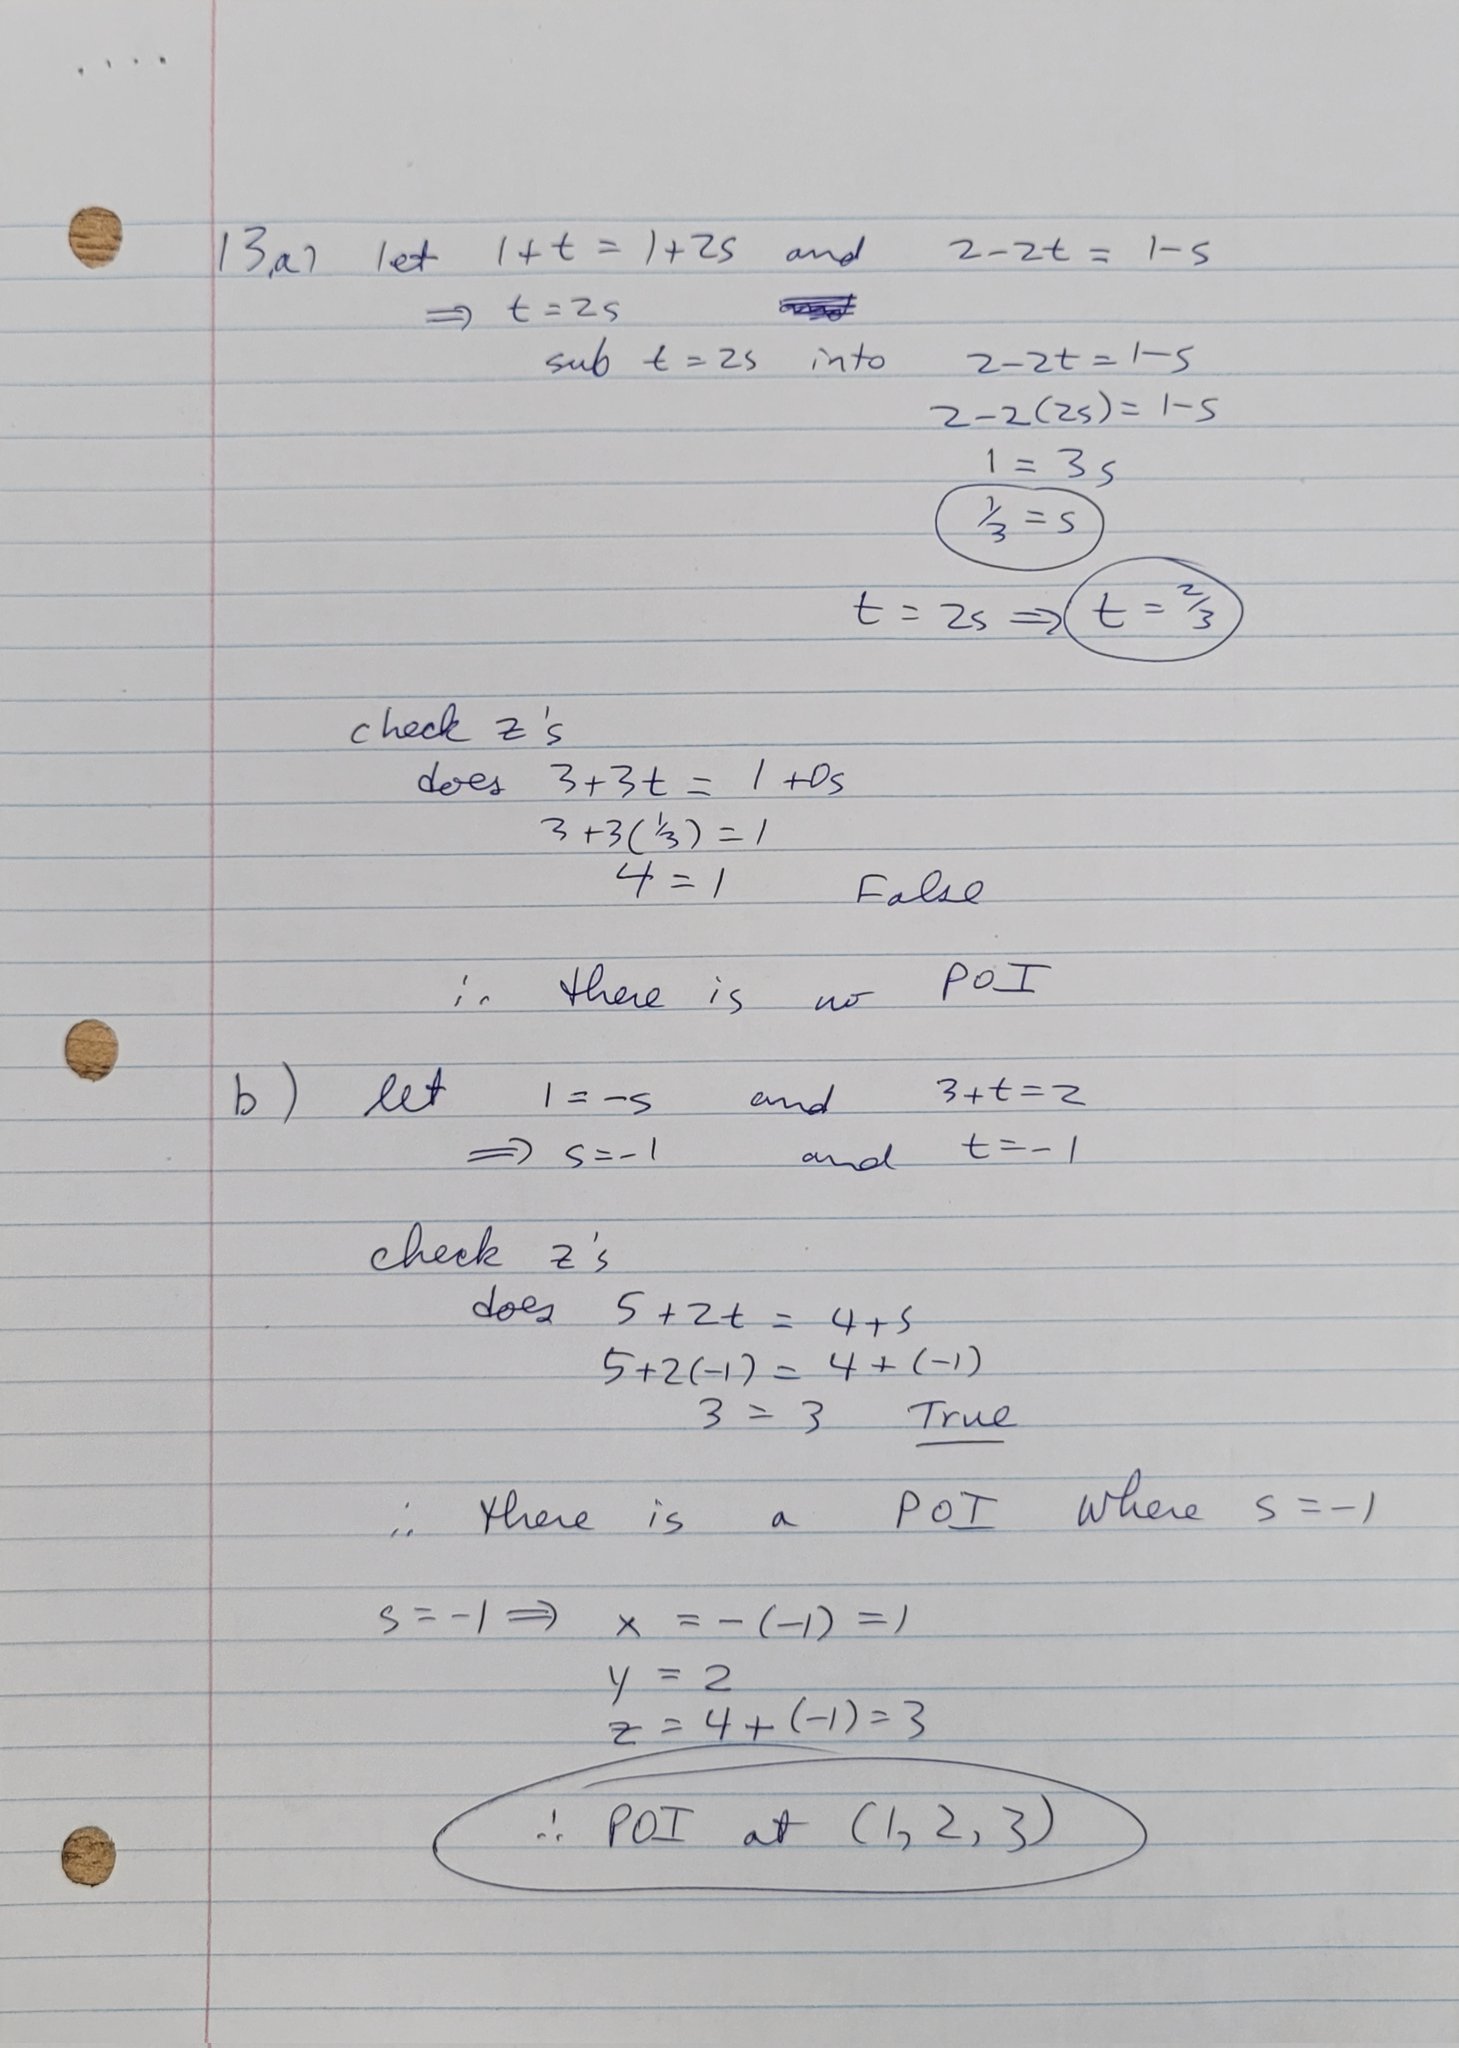 13.a) let 1+t = 1+2s and 2-2t = 1-s
⇒ t=2s
sub t=2s into 2-2t=1-s
2-2(2s)=1-s
1 = 3s
1/3 = s
t = 2s ⇒ t = 2/3
check z's
does 3+3t = 1+0s
3+3(1/3) = 1
4 = 1 False
∴ there is no POI
b) let 1=-s and 3+t=2
⇒ s=-1 and t=-1
check z's
does 5+2t = 4+s
5+2(-1) = 4+(-1)
3 = 3 True
∴ there is a POI where s=-1
s=-1 ⇒ x = -(-1) = 1
y = 2
z = 4+(-1)=3
∴ POI at (1, 2, 3)